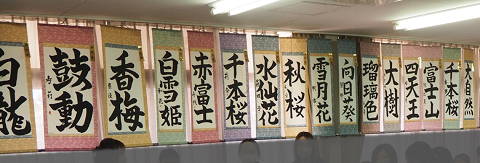 白龍
鼓動
香梅
白雪姫
赤富士
千本桜
水仙花
秋桜
雪月花
向日葵
瑠璃色
大樹
四天王
富士山
千本桜
大自然